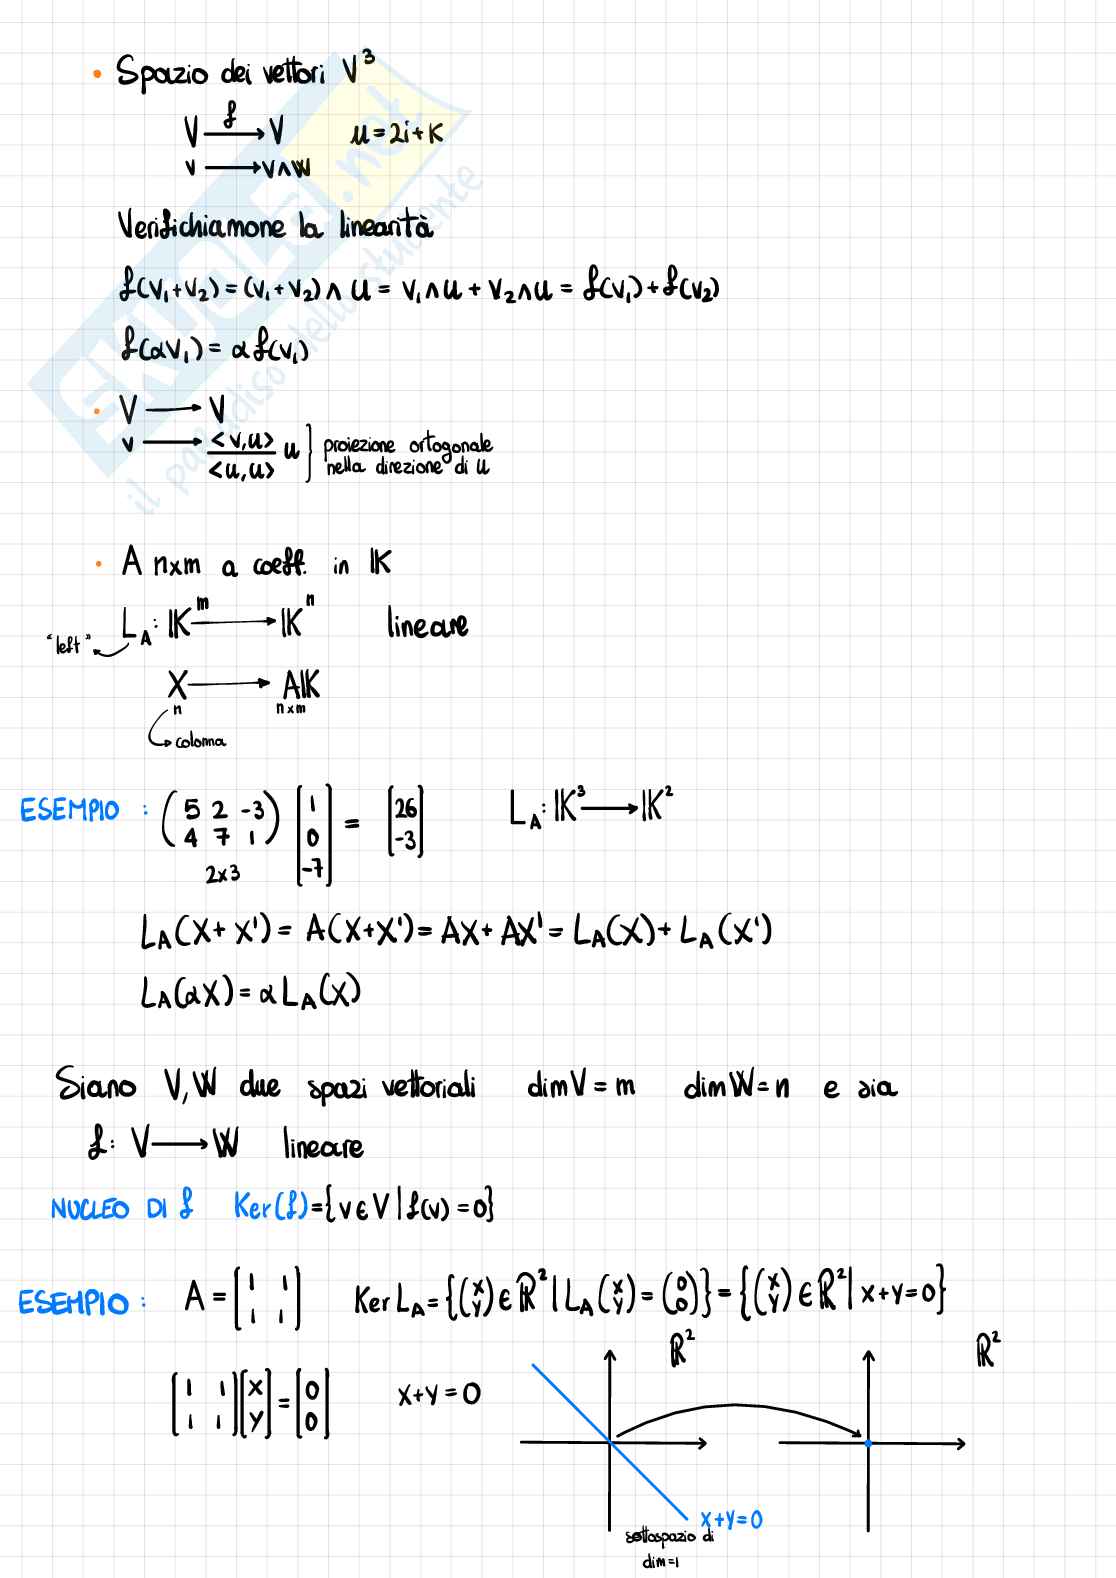 • Spazio dei vettori V³
V —f→ V    u = 2i + k
v → v∧W
Verifichiamone la linearità
f(v₁+v₂) = (v₁+v₂)∧u = v₁∧u + v₂∧u = f(v₁)+f(v₂)
f(αv₁) = αf(v₁)
• V → V
v → <v,u>/<u,u> u } proiezione ortogonale
nella direzione di u
• A n×m a coeff. in K
"left" L_A: K^m → K^n    lineare
X → AK
n    n×m
colonna
ESEMPIO : (5 2 -3; 4 7 1) [1; 0; -7] = [26; -3]    L_A: K³ → K²
2×3
L_A(X+X') = A(X+X') = AX+AX' = L_A(X)+L_A(X')
L_A(αX) = αL_A(X)
Siano V,W due spazi vettoriali  dimV=m  dimW=n  e sia
f: V → W  lineare
NUCLEO DI f  Ker(f)={v∈V|f(v)=0}
ESEMPIO :  A = [1 1; 1 1]  Ker L_A = {(x; y)∈R² | L_A(x; y) = (0; 0)} = {(x; y)∈R² | x+y=0}
R²    R²
[1 1; 1 1][x; y] = [0; 0]    x+y=0
x+y=0
sottospazio di
dim=1
SKUOLA.net
il paradiso dello studente